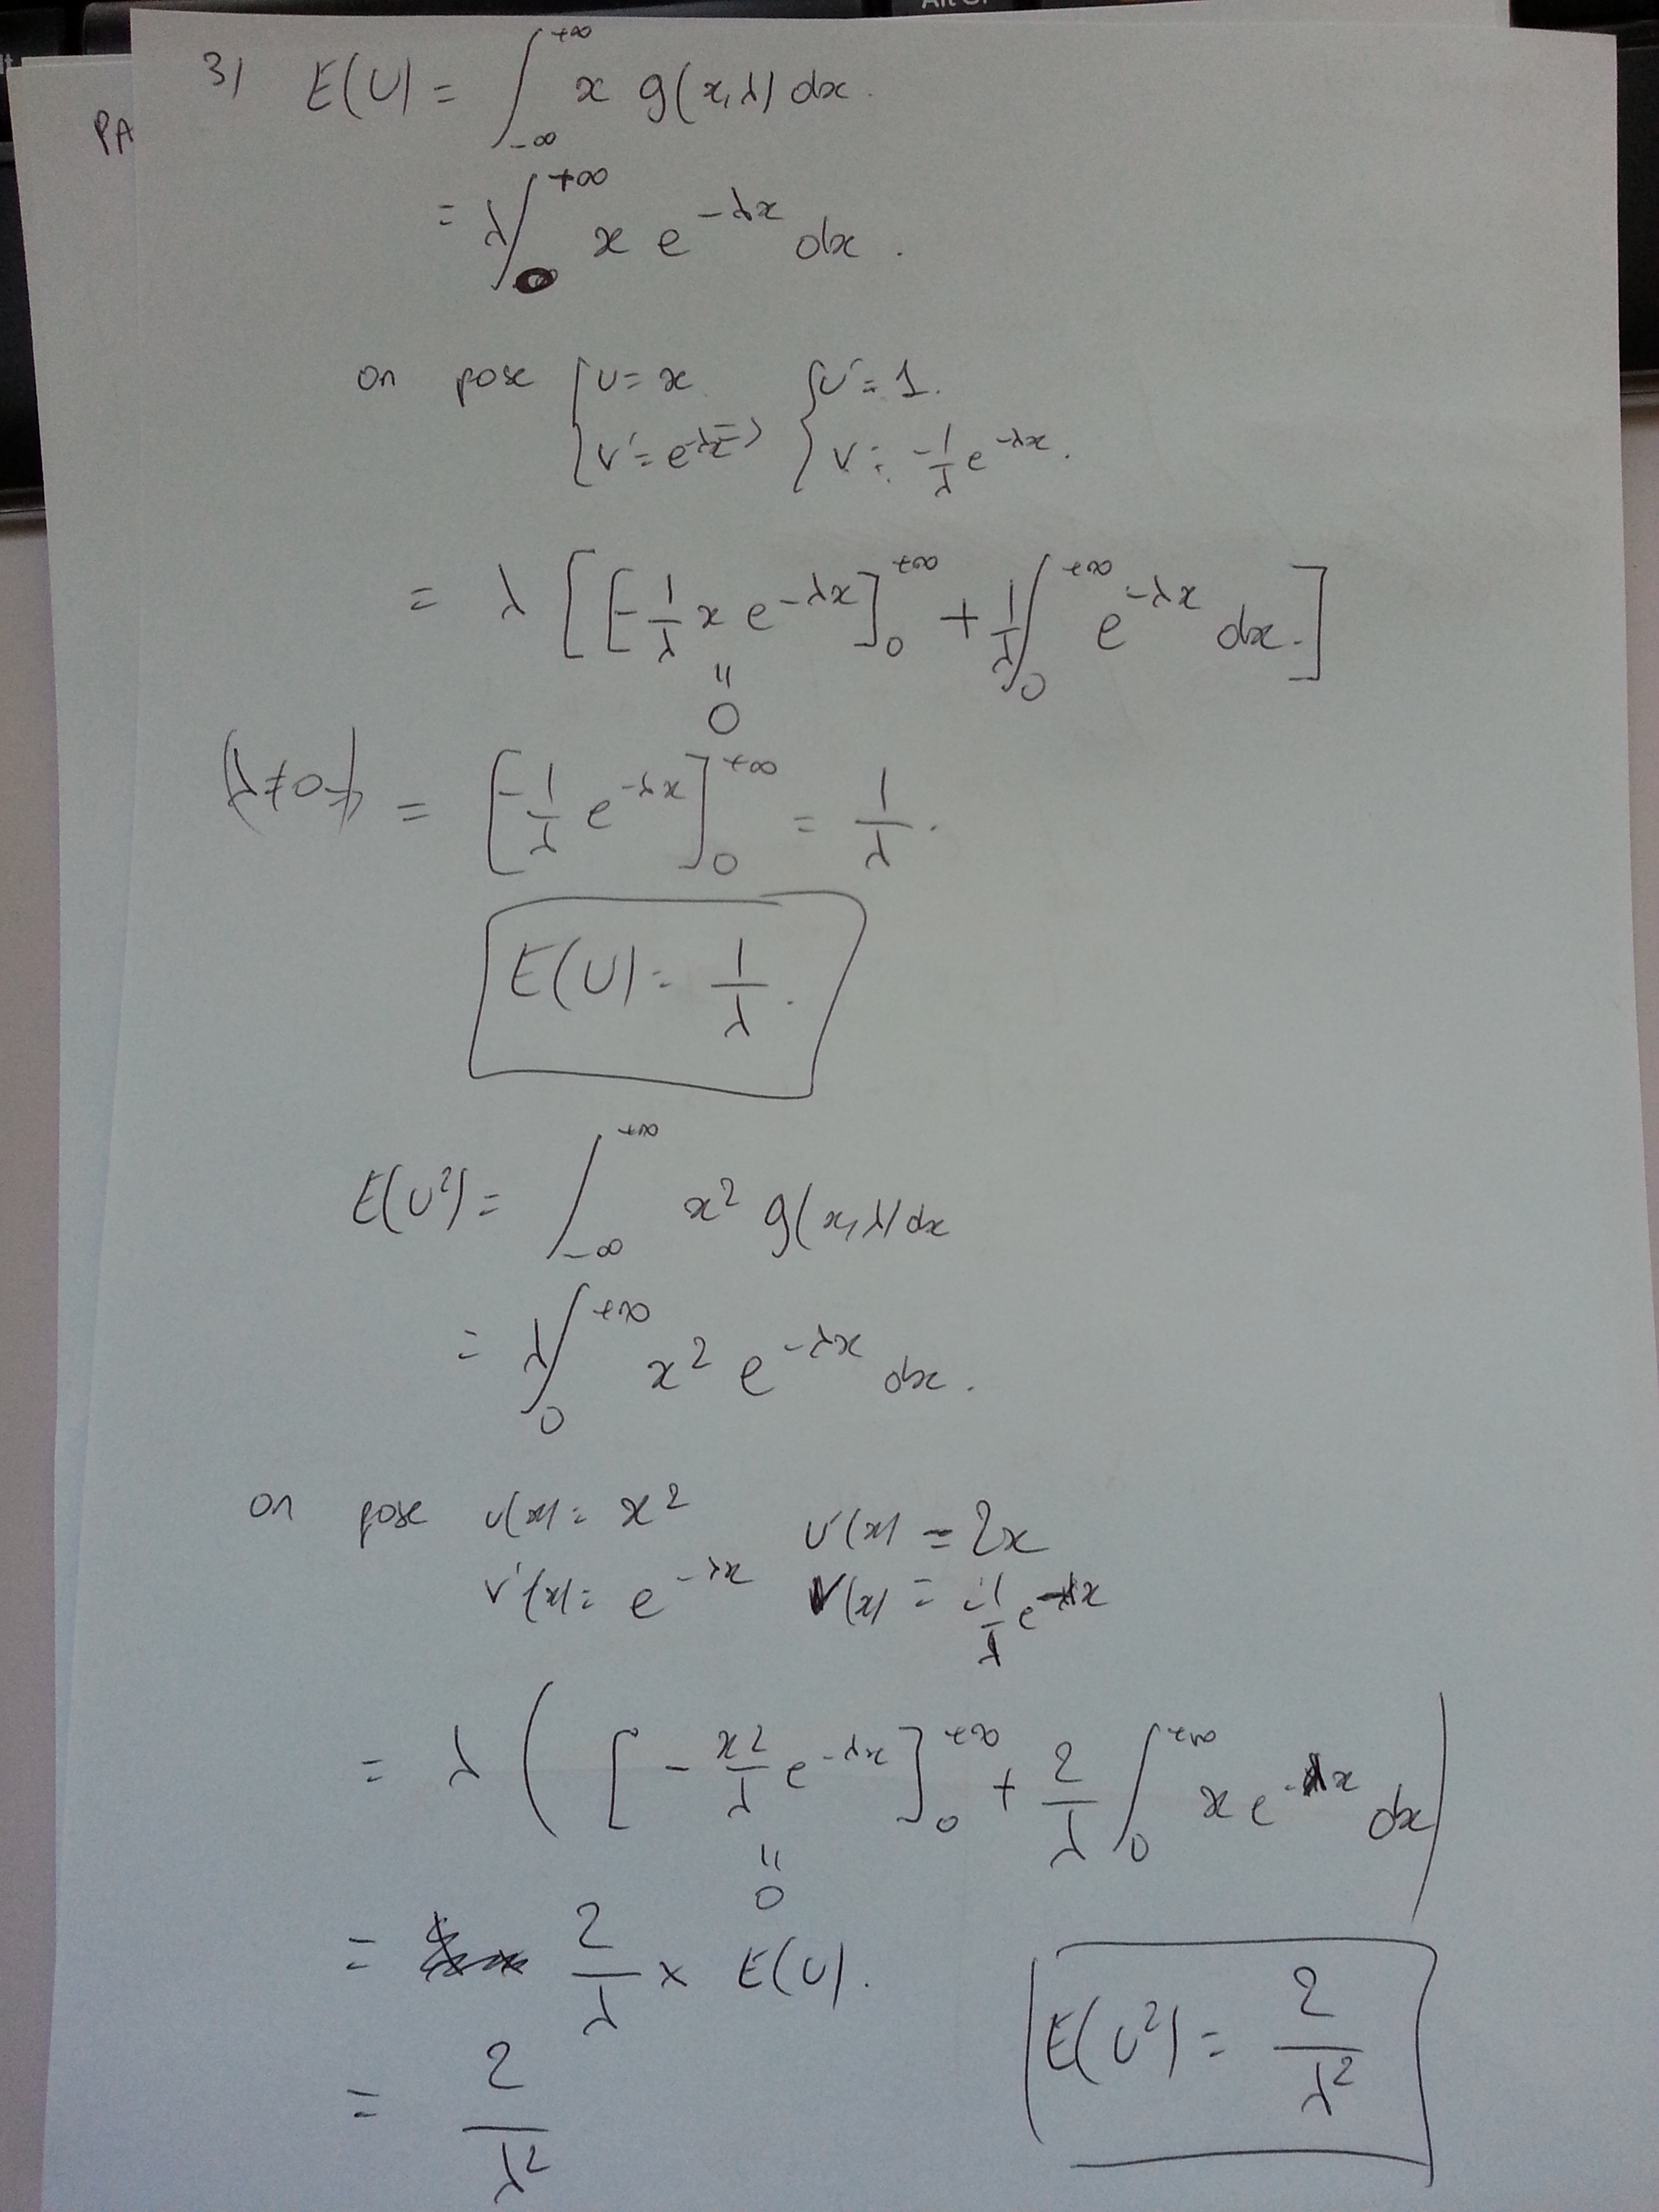 Alt Gr
lt
PA
3) E(U) = ∫_{-∞}^{+∞} x g(x,λ) dx.
= λ ∫_0^{+∞} x e^{-λx} dx.
on pose { u = x { u' = 1.
{ v' = e^{-λx} => { v = -1/λ e^{-λx}.
= λ [ [-1/λ x e^{-λx}]_0^{+∞} + 1/λ ∫_0^{+∞} e^{-λx} dx. ]
"
0
(λ≠0) = [-1/λ e^{-λx}]_0^{+∞} = 1/λ.
E(U) = 1/λ.
E(U²) = ∫_{-∞}^{+∞} x² g(x,λ) dx
= λ ∫_0^{+∞} x² e^{-λx} dx.
on pose u(x) = x² u'(x) = 2x
v'(x) = e^{-λx} v(x) = -1/λ e^{-λx}
= λ ( [-x²/λ e^{-λx}]_0^{+∞} + 2/λ ∫_0^{+∞} x e^{-λx} dx )
"
0
= 2/λ × E(U).
= 2/λ²
E(U²) = 2/λ²